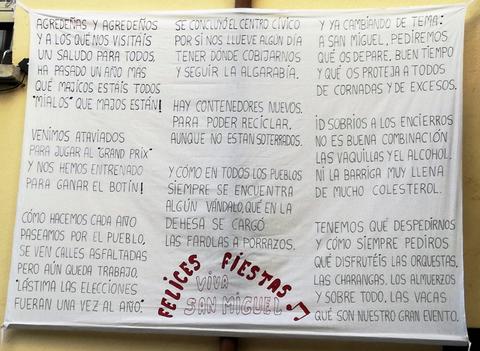 AGREDEÑAS Y AGREDEÑOS
Y A LOS QUÉ NOS VISITAÍS
UN SALUDO PARA TODOS,
HA PASADO UN AÑO MAS
QUÉ MAJICOS ESTAÍS TODOS
"MIALOS" QUE MAJOS ESTÁN!
VENIMOS ATAVIADOS
PARA JUGAR AL "GRAND PRIX"
Y NOS HEMOS ENTRENADO
PARA GANAR EL BOTÍN!
CÓMO HACEMOS CADA AÑO
PASEAMOS POR EL PUEBLO,
SE VEN CALLES ASFALTADAS
PERO AÚN QUEDA TRABAJO,
"LÁSTIMA LAS ELECCIONES
FUERAN UNA VEZ AL AÑO."
SE CONCLUYÓ EL CENTRO CÍVICO
POR SI NOS LLUEVE ALGÚN DÍA
TENER DÓNDE COBIJARNOS
Y SEGUIR LA ALGARABÍA.
HAY CONTENEDORES NUEVOS.
PARA PODER RECICLAR,
AUNQUE NO ESTAN SOTERRADOS.
Y CÓMO EN TODOS LOS PUEBLOS
SIEMPRE SE ENCUENTRA
ALGÚN VÁNDALO, QUÉ EN LA
DEHESA SE CARGÓ
LAS FAROLAS A PORRAZOS.
FELICES FIESTAS
VIVA
SAN MIGUEL
Y YA CAMBIANDO DE TEMA:
A SAN MIGUEL, PEDIREMOS
QUÉ OS DEPARE, BUEN TIEMPO
Y QUÉ OS PROTEJA A TODOS
DE CORNADAS Y DE EXCESOS.
ID SOBRIOS A LOS ENCIERROS
NO ES BUENA COMBINACIÓN
LAS VAQUILLAS Y EL ALCOHOL.
NI LA BARRIGA MUY LLENA
DE MUCHO COLESTEROL.
TENEMOS QUE DESPEDIRNOS
Y CÓMO SIEMPRE PEDIROS
QUÉ DISFRUTÉIS LAS ORQUESTAS,
LAS CHARANGAS, LOS ALMUERZOS
Y SOBRE TODO, LAS VACAS
QUÉ SON NUESTRO GRAN EVENTO.